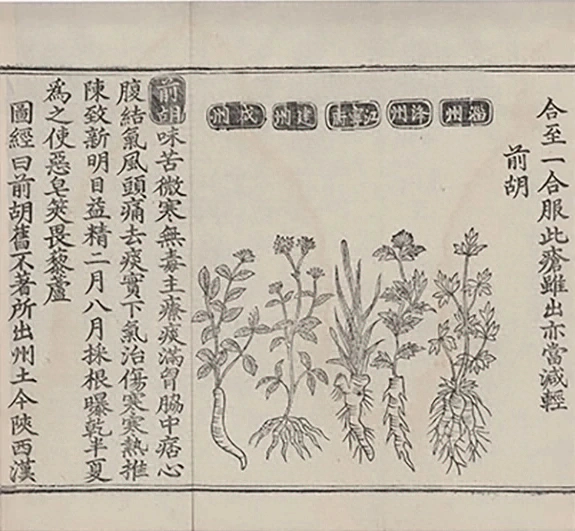 合至一合服此瘡雖出亦當減輕
前胡
淄州
絳州
江寧府
建州
成州
前胡味苦微寒無毒主療痰滿胷脇中痞心
腹結氣風頭痛去痰實下氣治傷寒寒熱推
陳致新明目益精二月八月採根曝乾半夏
爲之使惡皂莢畏藜蘆
圖經曰前胡舊不著所出州土今陝西漢